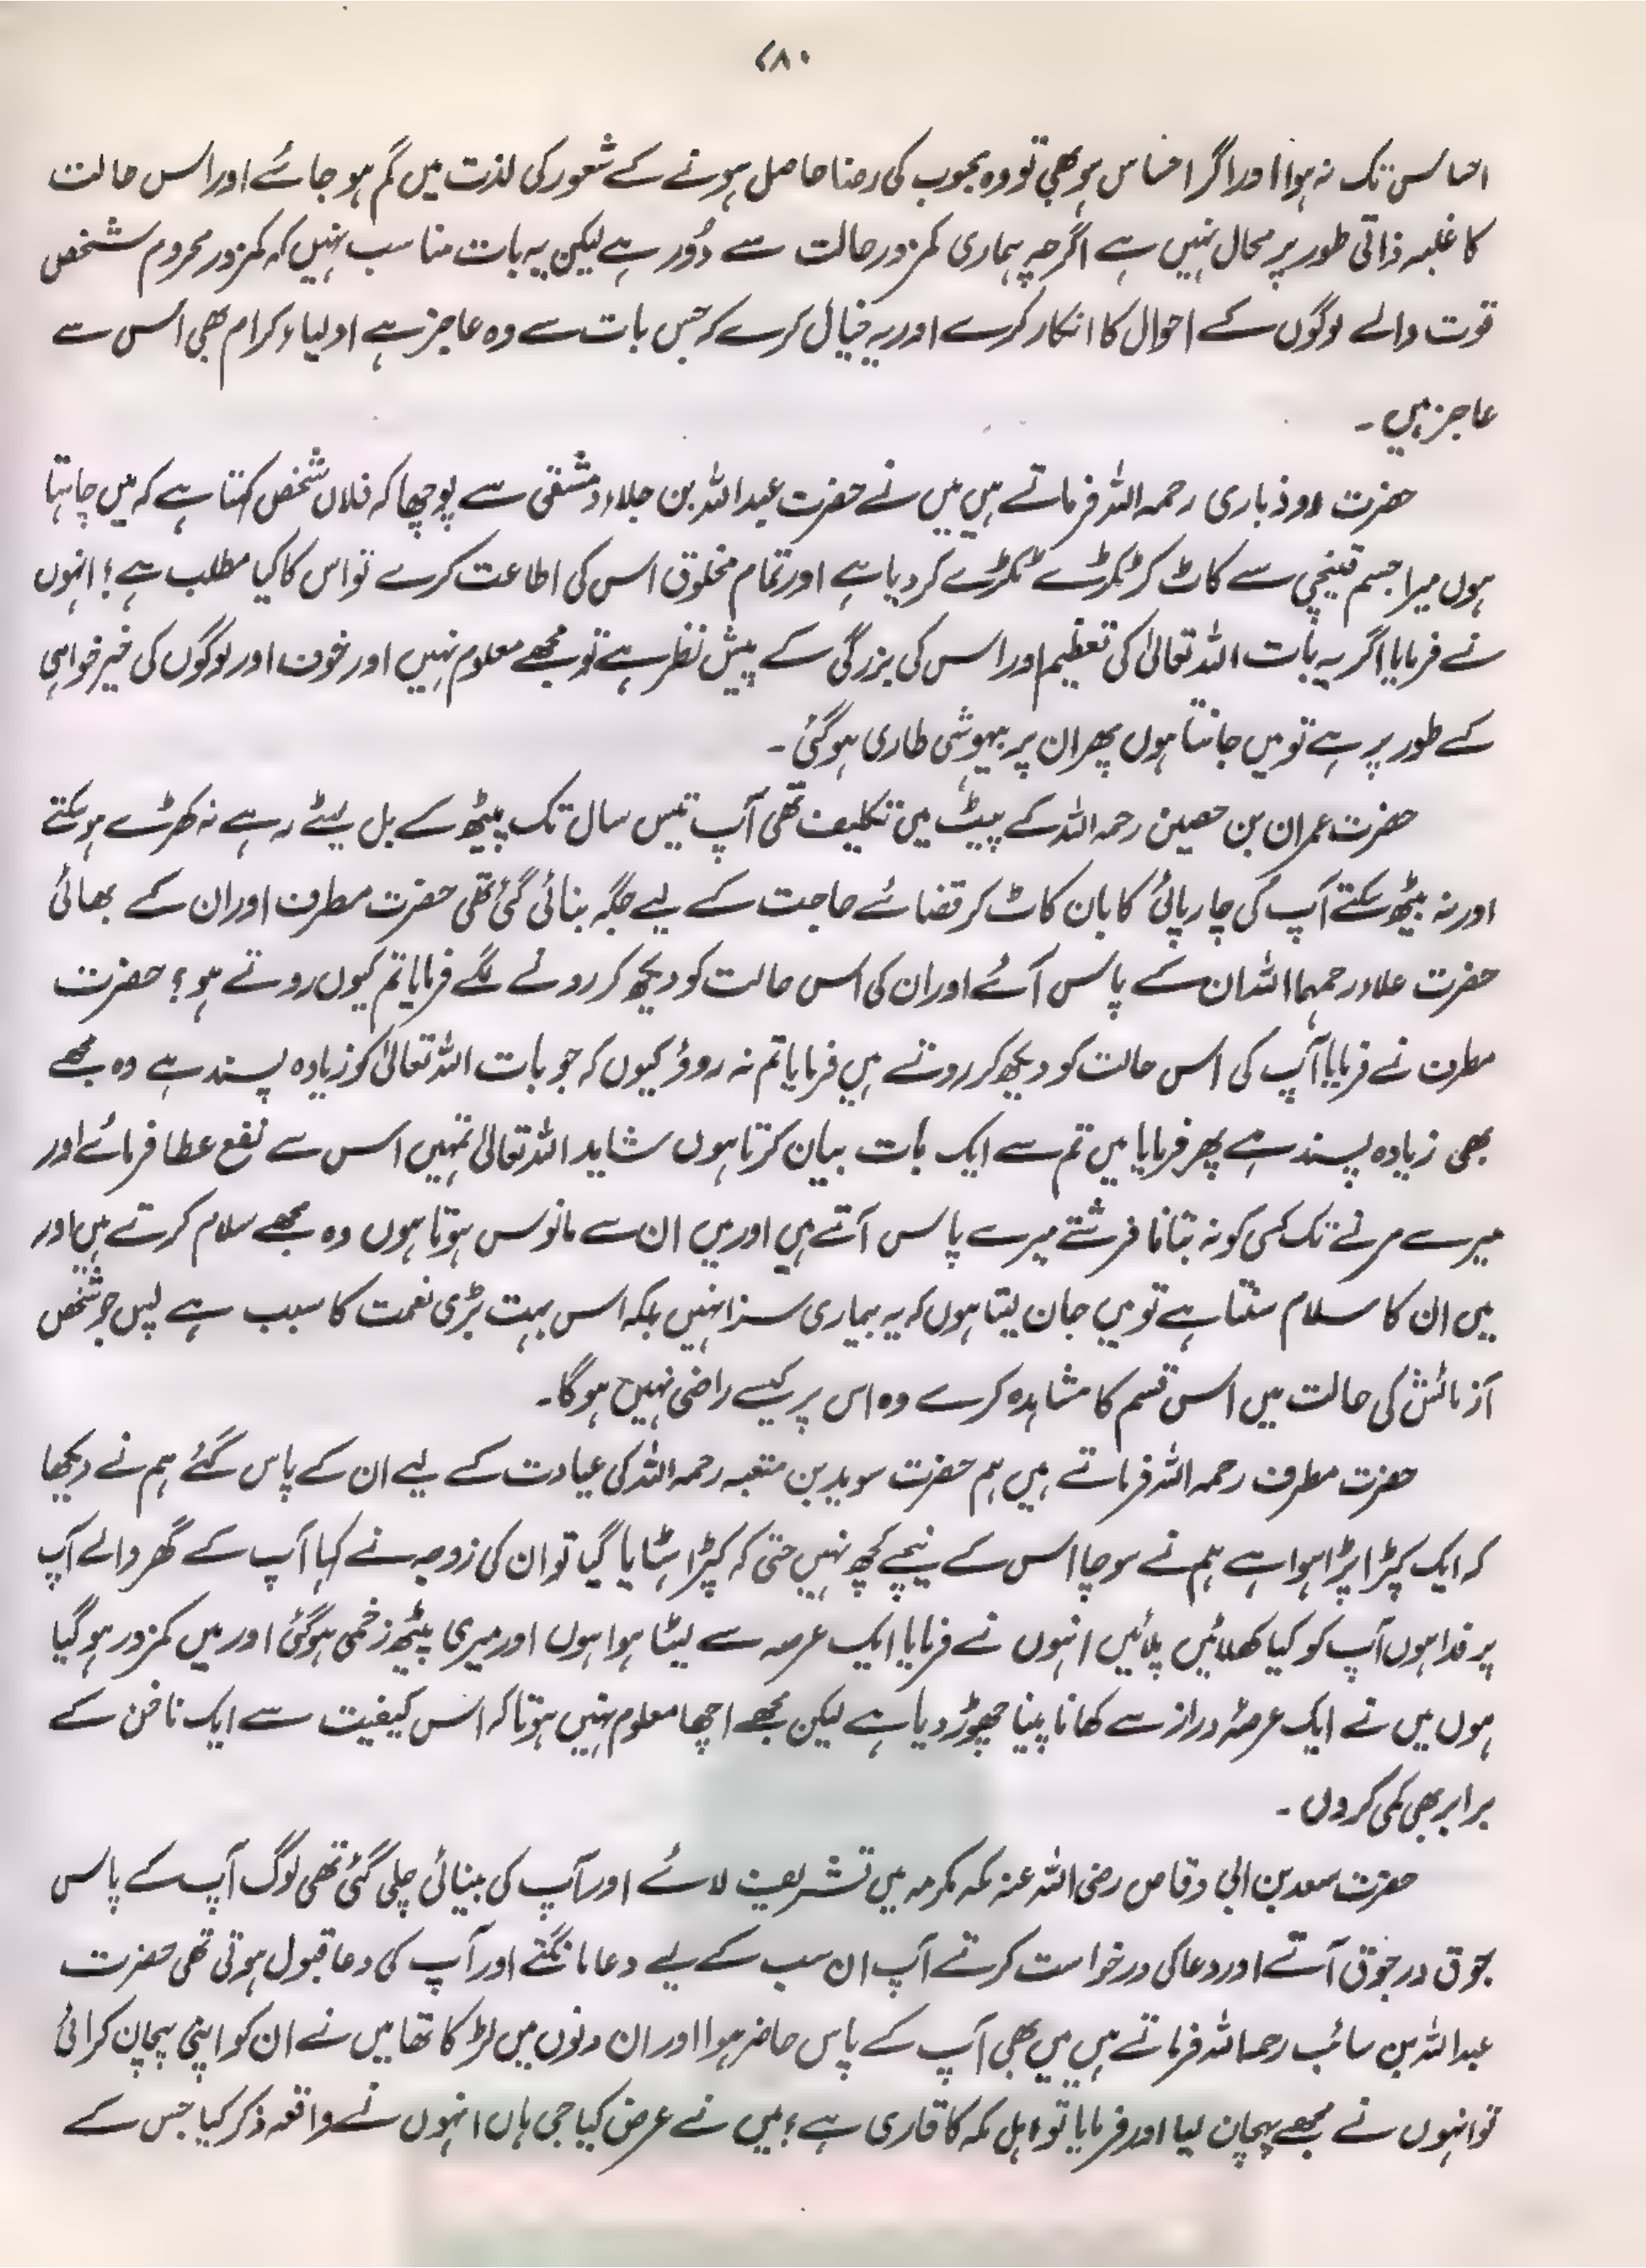 ۷۸۰
احساس تک نہ ہوا اور اگر احساس ہو بھی تو وہ محبوب کی رضا حاصل ہونے کے شعور کی لذت میں گم ہو جائے اور اس حالت
کا غلبہ ذاتی طور پر محال نہیں ہے اگرچہ ہماری کمزور حالت سے دُور ہے لیکن یہ بات مناسب نہیں کہ کمزور محروم شخص
قوت والے لوگوں کے احوال کا انکار کرے اور یہ خیال کرے کہ جس بات سے وہ عاجز ہے اولیاء کرام بھی اُس سے
عاجز ہیں ۔
حضرت رووذباری رحمہ اللہ فرماتے ہیں میں نے حضرت عبداللہ بن جلاء دمشقی سے پوچھا کہ فلاں شخص کہتا ہے کہ میں چاہتا
ہوں میرا جسم قینچی سے کاٹ کر ٹکڑے ٹکڑے کر دیا ہے اور تمام مخلوق اس کی اطاعت کرے تو اس کا کیا مطلب ہے؟ انہوں
نے فرمایا اگر یہ بات اللہ تعالیٰ کی تعظیم اور اس کی بزرگی کے پیش نظر ہے تو مجھے معلوم نہیں اور خوف اور لوگوں کی خیر خواہی
کے طور پر ہے تو میں جانتا ہوں پھر ان پر بیہوشی طاری ہو گئی ۔
حضرت عمران بن حصین رحمہ اللہ کے پیٹ میں تکلیف تھی آپ تیس سال تک پیٹھ کے بل لیٹے رہے نہ کھڑے ہو سکتے
اور نہ بیٹھ سکتے آپ کی چارپائی کا بان کاٹ کر قضائے حاجت کے لیے جگہ بنائی گئی تھی حضرت مطرف اور ان کے بھائی
حضرت علاء رحمہما اللہ ان کے پاس آئے اور ان کی اس حالت کو دیکھ کر رونے لگے فرمایا تم کیوں روتے ہو؟ حضرت
مطرف نے فرمایا آپ کی اس حالت کو دیکھ کر روتے ہیں فرمایا تم نہ روؤ کیوں کہ جو بات اللہ تعالیٰ کو زیادہ پسند ہے وہ مجھے
بھی زیادہ پسند ہے پھر فرمایا میں تم سے ایک بات بیان کرتا ہوں شاید اللہ تعالیٰ تمہیں اس سے نفع عطا فرمائے اور
میرے مرنے تک کسی کو نہ بتانا فرشتے میرے پاس آتے ہیں اور میں ان سے مانوس ہوتا ہوں وہ مجھے سلام کرتے ہیں اور
میں ان کا سلام سنتا ہے تو میں جان لیتا ہوں کہ یہ بیماری سزا نہیں بلکہ اس بہت بڑی نعمت کا سبب ہے پس جو شخص
آزمائش کی حالت میں اس قسم کا مشاہدہ کرے وہ اس پر کیسے راضی نہیں ہوگا۔
حضرت مطرف رحمہ اللہ فرماتے ہیں ہم حضرت سوید بن متعبہ رحمہ اللہ کی عیادت کے لیے ان کے پاس گئے ہم نے دیکھا
کہ ایک کپڑا پڑا ہوا ہے ہم نے سوچا اس کے نیچے کچھ نہیں حتیٰ کہ کپڑا ہٹایا گیا تو ان کی زوجہ نے کہا آپ کے گھر والے آپ
پر فدا ہوں آپ کو کیا کھلائیں پلائیں انہوں نے فرمایا ایک عرصہ سے لیٹا ہوا ہوں اور میری پیٹھ زخمی ہو گئی اور میں کمزور ہو گیا
ہوں میں نے ایک عرصۂ دراز سے کھانا پینا چھوڑ دیا ہے لیکن مجھے اچھا معلوم نہیں ہوتا کہ اس کیفیت سے ایک ناخن کے
برابر بھی کمی کروں ۔
حضرت سعد بن ابی وقاص رضی اللہ عنہ مکہ مکرمہ میں تشریف لائے اور آپ کی بینائی چلی گئی تھی لوگ آپ کے پاس
جوق در جوق آتے اور دعا کی درخواست کرتے آپ ان سب کے لیے دعا مانگتے اور آپ کی دعا قبول ہوتی تھی حضرت
عبداللہ بن سائب رحمہ اللہ فرماتے ہیں میں بھی آپ کے پاس حاضر ہوا اور ان دنوں میں لڑکا تھا میں نے ان کو اپنی پہچان کرائی
تو انہوں نے مجھے پہچان لیا اور فرمایا تو اہل مکہ کا قاری ہے؟ میں نے عرض کیا جی ہاں انہوں نے واقعہ ذکر کیا جس کے